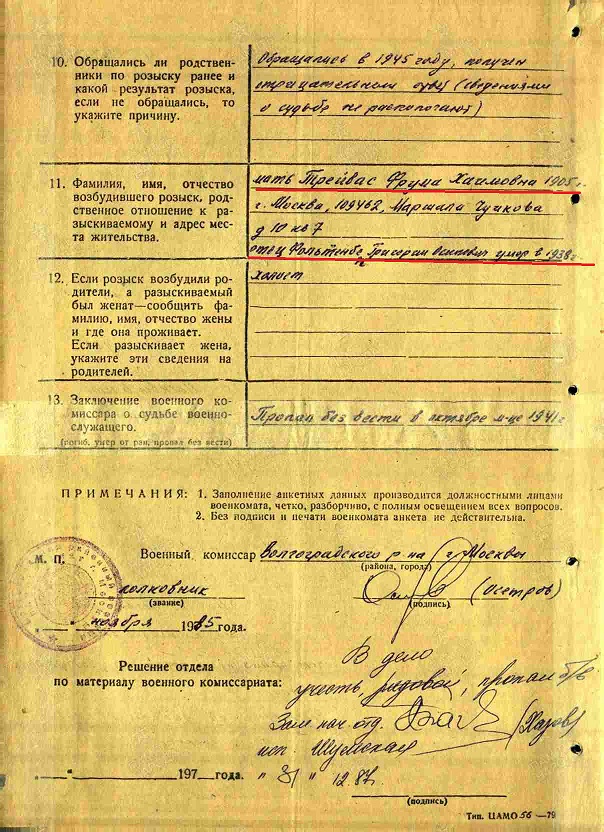 10. Обращались ли родствен-
ники по розыску ранее и
какой результат розыска,
если не обращались, то
укажите причину.
Обращались в 1945 году, получен
отрицательный ответ (сведениями
о судьбе не располагают)
11. Фамилия, имя, отчество
возбудившего розыск, род-
ственное отношение к ра-
зыскиваемому и адрес мес-
та жительства.
мать Трейвас Фрума Хаимовна 1905 г.
г. Москва, 109462, Маршала Чуйкова
д 10 кв 7
отец Григорий Осипович умер в 1938г
12. Если розыск возбудили ро-
дители, а разыскиваемый
был женат—сообщить фа-
милию, имя, отчество жены
и где она проживает.
Если разыскивает жена,
укажите эти сведения на
родителей.
холост
13. Заключение военного ко-
миссара о судьбе военно-
служащего.
(погиб, умер от ран, пропал без вести)
Пропал без вести в октябре м-це 1941г
ПРИМЕЧАНИЯ: 1. Заполнение анкетных данных производится должностными лицами
военкомата, четко, разборчиво, с полным освещением всех вопросов.
2. Без подписи и печати военкомата анкета не действительна.
М. П.
Военный комиссар Волгоградского р-на г. Москвы
(района, города)
полковник
(звание)
(Осетров)
(подпись)
" " ноября 1985 года.
Решение отдела
по материалу военного комиссариата:
В дело
учесть рядовой, пропал б/в
Зам нач отд. (Хазов)
исп. Шумская
" " 197 года.
" 31 " 12.87.
(подпись)
Тип. ЦАМО 56 —79